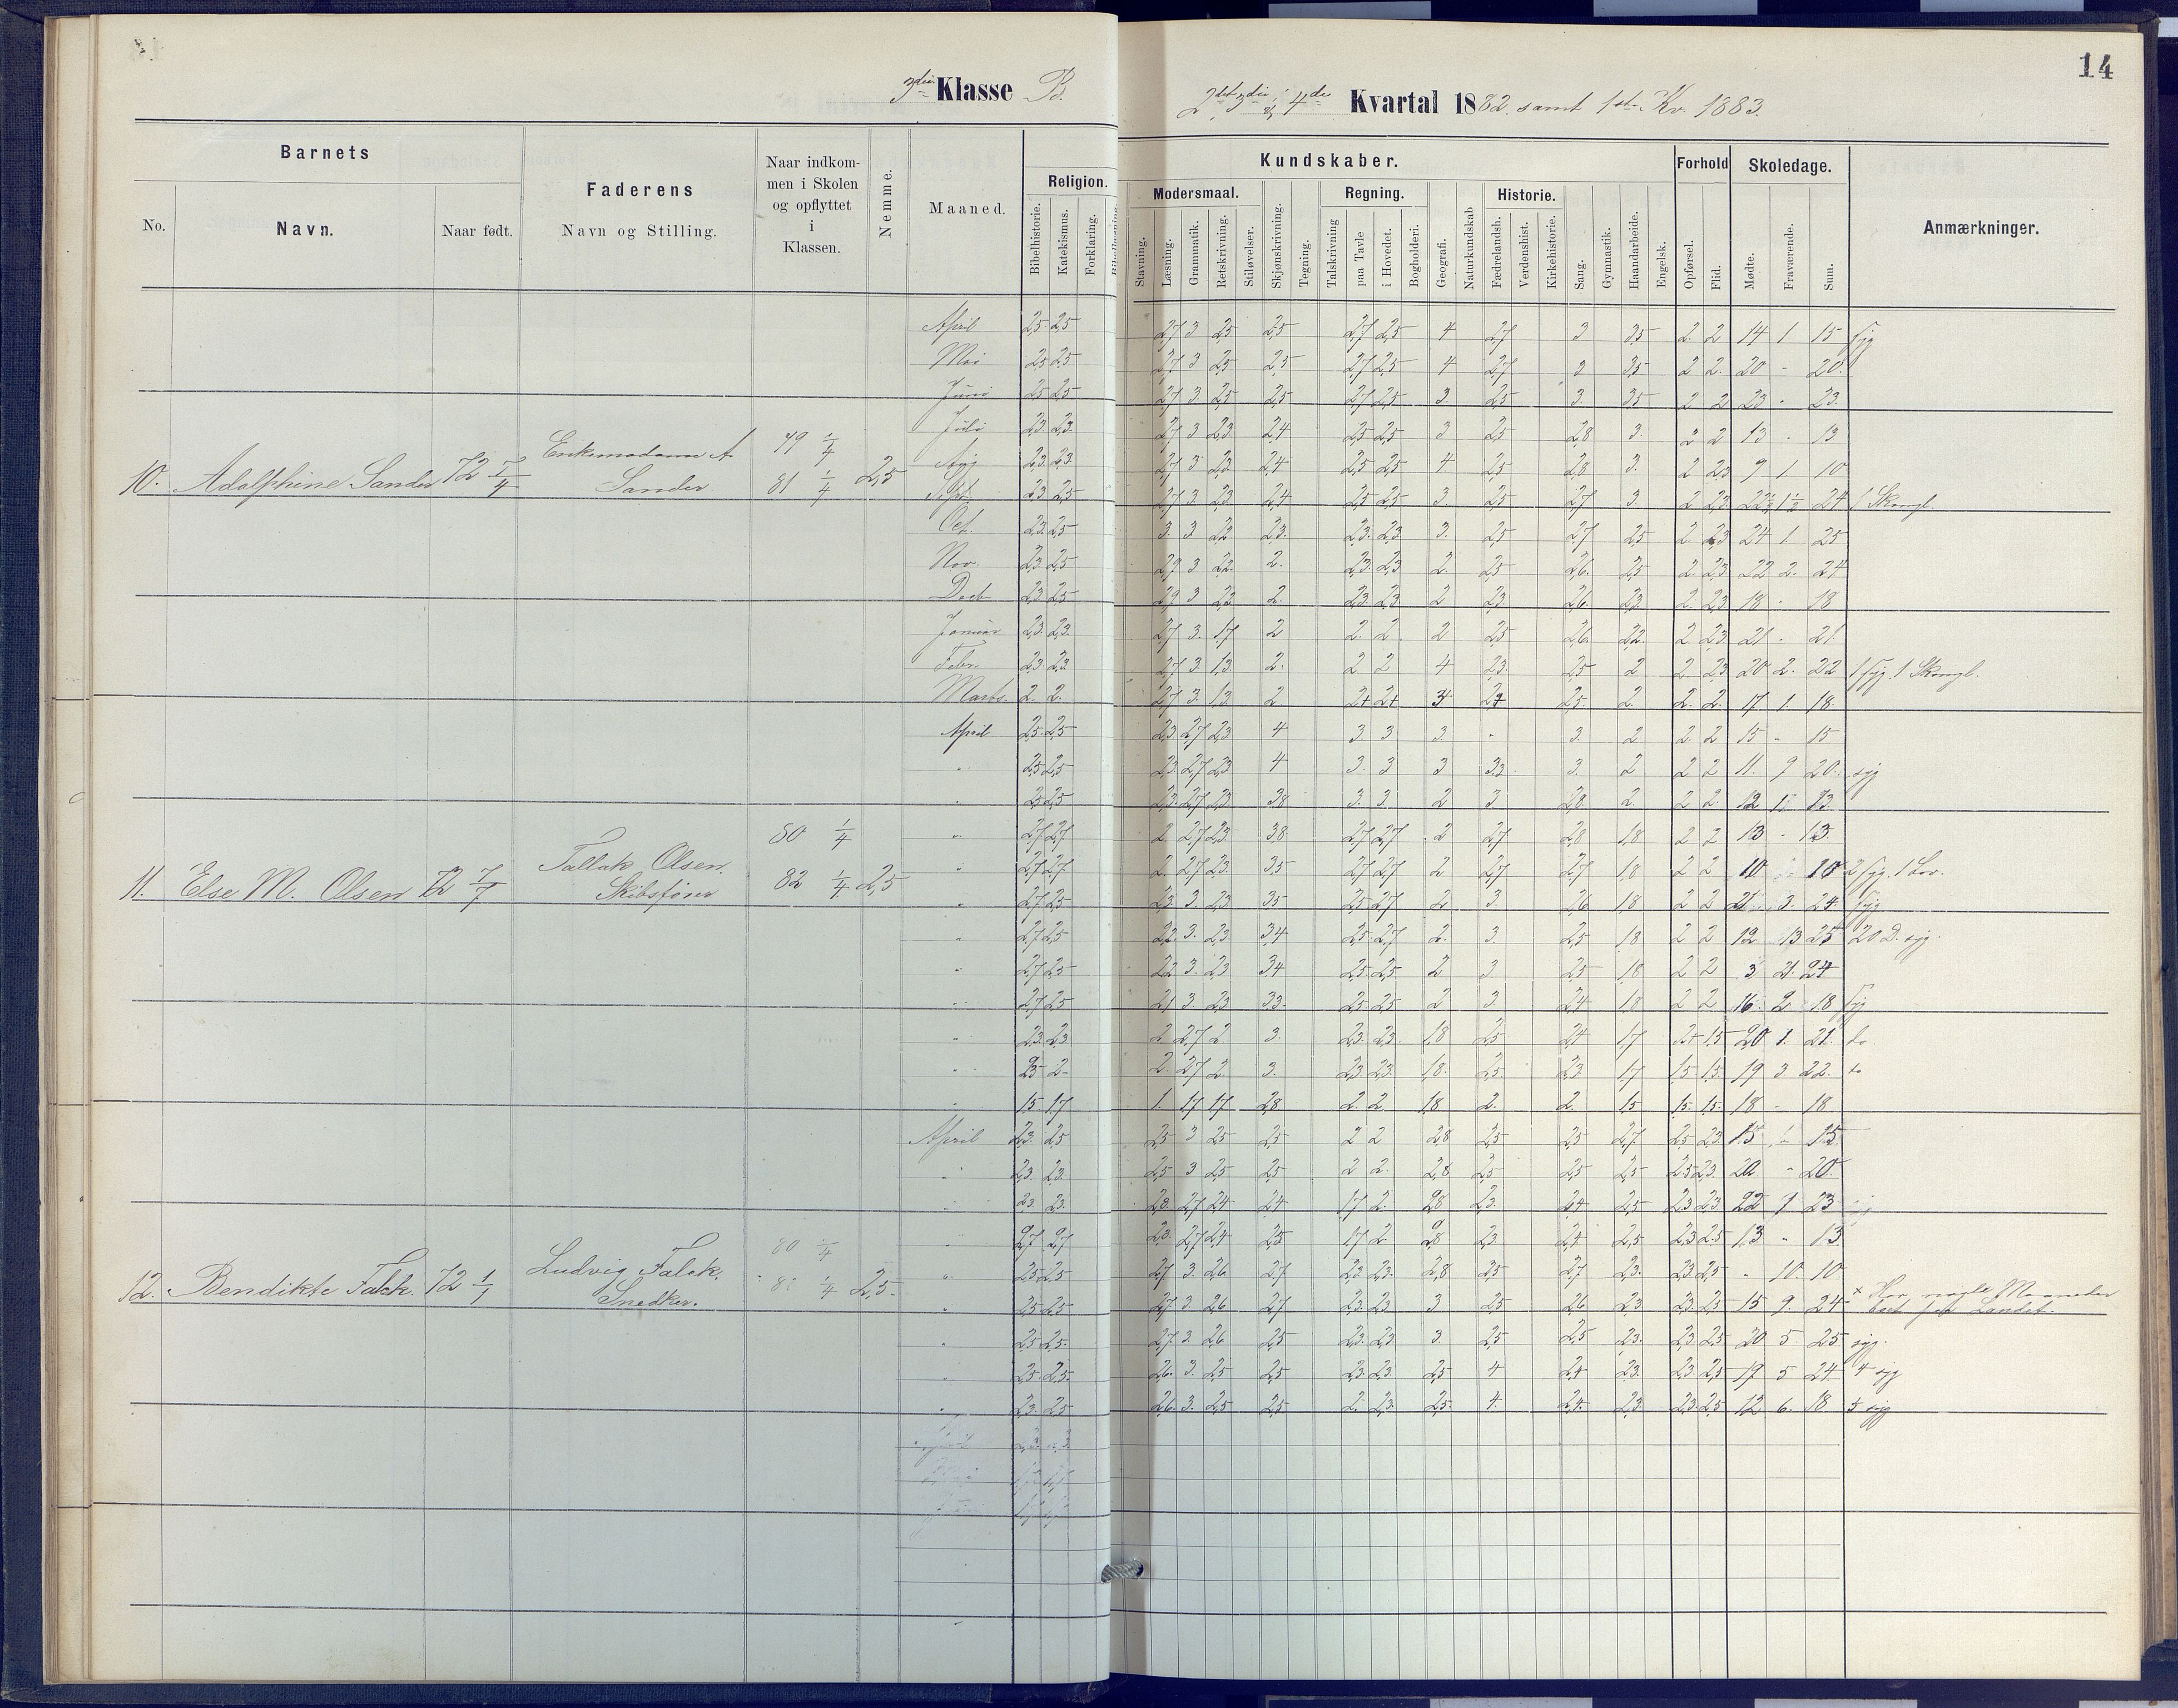 14
3die Klasse B.
2det, 3die, og 4de Kvartal 1882. samt 1ste Kv. 1883.
Barnets
Faderens
Naar indkom-
men i Skolen
og opflyttet
i
Klassen.
Nemme.
Maaned.
No.
Navn.
Naar født.
Navn og Stilling.
Religion.
Bibelhistorie.
Katekismus.
Forklaring.
Kundskaber.
Modersmaal.
Stavning.
Læsning.
Grammatik.
Retskrivning.
Stiløvelser.
Skjønskrivning.
Tegning.
Regning.
Talskrivning
paa Tavle
i Hovedet.
Bogholderi.
Geografi.
Naturkundskab
Historie.
Fædrelandsh.
Verdenshist.
Kirkehistorie.
Sang.
Gymnastik.
Haandarbeide.
Engelsk.
Forhold
Opførsel.
Flid.
Skoledage.
Mødte.
Fraværende.
Sum.
Anmærkninger.
April 2,5 2,5 2,7 3 2,5 2,5 2,7 2,5 4 2,7 3 3,5 2 2 14 1 15 syg
Mai 2,5 2,5 2,7 3 2,5 2,5 2,7 2,5 4 2,7 3 3,5 2 2 20 - 20
Juni 2,5 2,5 2,7 3 2,5 2,5 2,7 2,5 3 2,5 3 3,5 2 2 23 - 23
Juli 2,3 2,3 2,7 3 2,3 2,4 2,5 2,5 3 2,5 2,8 3 2 2 13 - 13
10. Adolphine Sander 72 Enkemadame A. Sander 79 1/4 81 1/4 2,5
Aug 2,3 2,3 2,7 3 2,3 2,4 2,5 2,5 4 2,5 2,8 3 2 2,3 9 1 10
Sept. 2,3 2,5 2,7 3 2,3 2,4 2,5 2,5 3 2,5 2,7 3 2 2,3 22½ 1½ 24 1 Skovgl.
Oct. 2,3 2,5 3 3 2,2 2,3 2,3 2,3 3 2,5 2,7 2,5 2 2,3 24 1 25
Nov. 2,3 2,5 2,9 3 2,2 2 2,3 2,3 2 2,5 2,6 2,5 2 2,3 22 2 24
Decb 2,3 2,5 2,9 3 2,3 2 2,3 2,3 2 2,3 2,6 2,3 2 2,3 18 - 18
Januar 2,3 2,3 2,7 3 1,7 2 2 2 2 2,5 2,6 2,2 2 2,3 21 - 21
Febr. 2,3 2,3 2,7 3 1,3 2 2 2 4 2,3 2,5 2 2 2,3 20 2 22
Marts. 2 2 2,7 3 1,3 2 2+ 2+ 2,5 2 2 2 17 1 18
April 2,5 2,5 2,3 2,7 2,3 4 3 3 3 - 3 2 2 2 15 - 15
" 2,5 2,5 2,3 2,7 2,3 4 3 3 3 3,3 3 2 2 2 11 9 20 syg
" 2,5 2,5 2,3 2,7 2,3 3,8 3 3 2 3 2,8 2 2 2 12
" 2,7 2,7 2 2,7 2,3 3,8 2,7 2,7 2 2,7 2,8 1,8 2 2 13 - 13
11. Else M. Olsen 72 7/7 Tallak Olsen. Skibsfører 80 1/4 82 1/4 2,5
" 2,7 2,7 2 2,7 2,3 3,5 2,7 2,7 2 2,7 2,7 1,8 2 2 10 10 2 syg. 1 Lov.
" 2,7 2,5 2,3 3 2,3 3,5 2,5 2,7 2 3 2,6 1,8 2 2 21 3 24 syg
" 2,7 2,5 2,2 3 2,3 3,4 2,5 2,7 2 3 2,5 1,8 2 2 12 13 25 20 D. syg.
" 2,7 2,5 2,2 3 2,3 3,4 2,5 2,5 2 3 2,5 1,8 2 2 3 21 24
" 2,7 2,5 2,1 3 2,3 3,3 2,5 2,5 2 3 2,4 1,8 2 2 16 2 18 syg
" 2,3 2,3 2 2,7 2 3 2,3 2,3 1,8 2,5 2,4 1,7 2+ 1,5 20 1 21 do
" 2 2 2,7 2 3 2,3 2,3 1,8 2,5 2,3 1,7 1,5 1,5 19 3 22 do
" 1,5 1,7 1 1,7 1,7 2,8 2 2 1,8 2 2 1,5 1,5 1,5 18 - 18
April 2,3 2,5 2,5 3 2,5 2,5 2 2 2,8 2,5 2,5 2,7 2,5 2,3 15 15
" 2,3 2,3 2,5 3 2,5 2,5 2 2 2,8 2,5 2,5 2,5 2,5 2,3 20 - 20
" 2,3 2,3 2,8 2,7 2,4 2,4 1,7 2 2,8 2,3 2,4 2,5 2,3 2,3 22 1 23
" 2,7 2,7 2,8 2,7 2,4 2,5 1,7 2 2,8 2,3 2,4 2,5 2,3 2,5 13 " 13
12. Bendikte Falck. 72 1/1 Ludvig Falck. Snedker. 80 1/4 1/4 2,5
" 2,5 2,5 2,7 3 2,6 2,7 2,3 2,3 2,8 2,5 2,7 2,3 2,3 2,5 - 10 10
" 2,5 2,5 2,7 3 2,6 2,7 2,3 2,3 3 2,5 2,6 2,3 2,3 2,5 15 9 24 × Har nogle Maaneder
Landet.
" 2,5 2,5 2,7 3 2,6 2,5 2,3 2,3 3 2,5 2,5 2,3 2,3 2,5 20 5 25 syg.
" 2,5 2,5 2,6 3 2,5 2,5 2,3 2,3 2,5 4 2,4 2,3 2,3 2,5 19 5 24 4 syg
" 2,3 2,5 2,6 3 2,5 2,5 2 2,3 2,5 4 2,4 2,3 2,3 2,5 12 6 18 5 syg